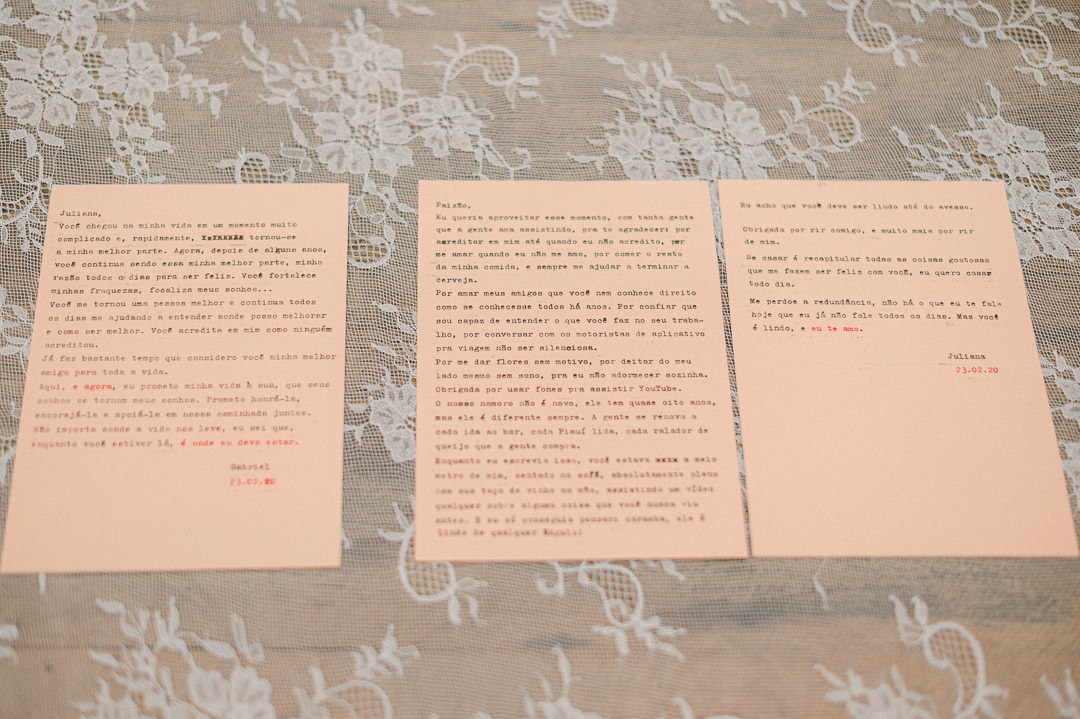 Juliana,
Você chegou na minha vida em um momento muito
complicado e, rapidamente, tornou-se
a minha melhor parte. Agora, depois de alguns anos,
você continua sendo essa minha melhor parte, minha
razão todos os dias para ser feliz. Você fortalece
minhas fraquezas, focaliza meus sonhos...
Você me tornou uma pessoa melhor e continua todos
os dias me ajudando a entender aonde posso melhorar
e como ser melhor. Você acredita em mim como ninguém
acreditou.
Já faz bastante tempo que considero você minha melhor
amiga para toda a vida.
Aqui, e agora, eu prometo minha vida à sua, que seus
sonhos se tornam meus sonhos. Prometo honrá-la,
encorajá-la e apoiá-la em nossa caminhada juntos.
Não importa aonde a vida nos leve, eu sei que,
enquanto você estiver lá, é onde eu devo estar.
Gabriel
23.02.20
Paixão,
Eu queria aproveitar esse momento, com tanta gente
que a gente ama assistindo, pra te agradecer: por
acreditar em mim até quando eu não acredito, por
me amar quando eu não me amo, por comer o resto
da minha comida, e sempre me ajudar a terminar a
cerveja.
Por amar meus amigos que você nem conhece direito
como se conhecesse todos há anos. Por confiar que
sou capaz de entender o que você faz no seu traba-
lho, por conversar com os motoristas de aplicativo
pra viagem não ser silenciosa.
Por me dar flores sem motivo, por deitar do meu
lado mesmo sem sono, pra eu não adormecer sozinha.
Obrigada por usar fones pra assistir YouTube.
O nosso namoro não é novo, ele tem quase oito anos,
mas ele é diferente sempre. A gente se renova a
cada ida ao bar, cada Piauí lida, cada ralador de
queijo que a gente compra.
Enquanto eu escrevia isso, você estava xxix a meio
metro de mim, sentado no sofá, absolutamente pleno
com sua taça de vinho na mão, assistindo um vídeo
qualquer sobre alguma coisa que você nunca viu
antes. E eu só conseguia pensar: caramba, ele é
lindo de qualquer ângulo!
Eu acho que você deve ser lindo até do avesso.
Obrigada por rir comigo, e muito mais por rir
de mim.
Se casar é recapitular todas as coisas gostosas
que me fazem ser feliz com você, eu quero casar
todo dia.
Me perdoe a redundância, não há o que eu te fale
hoje que eu já não fale todos os dias. Mas você
é lindo, e eu te amo.
Juliana
23.02.20